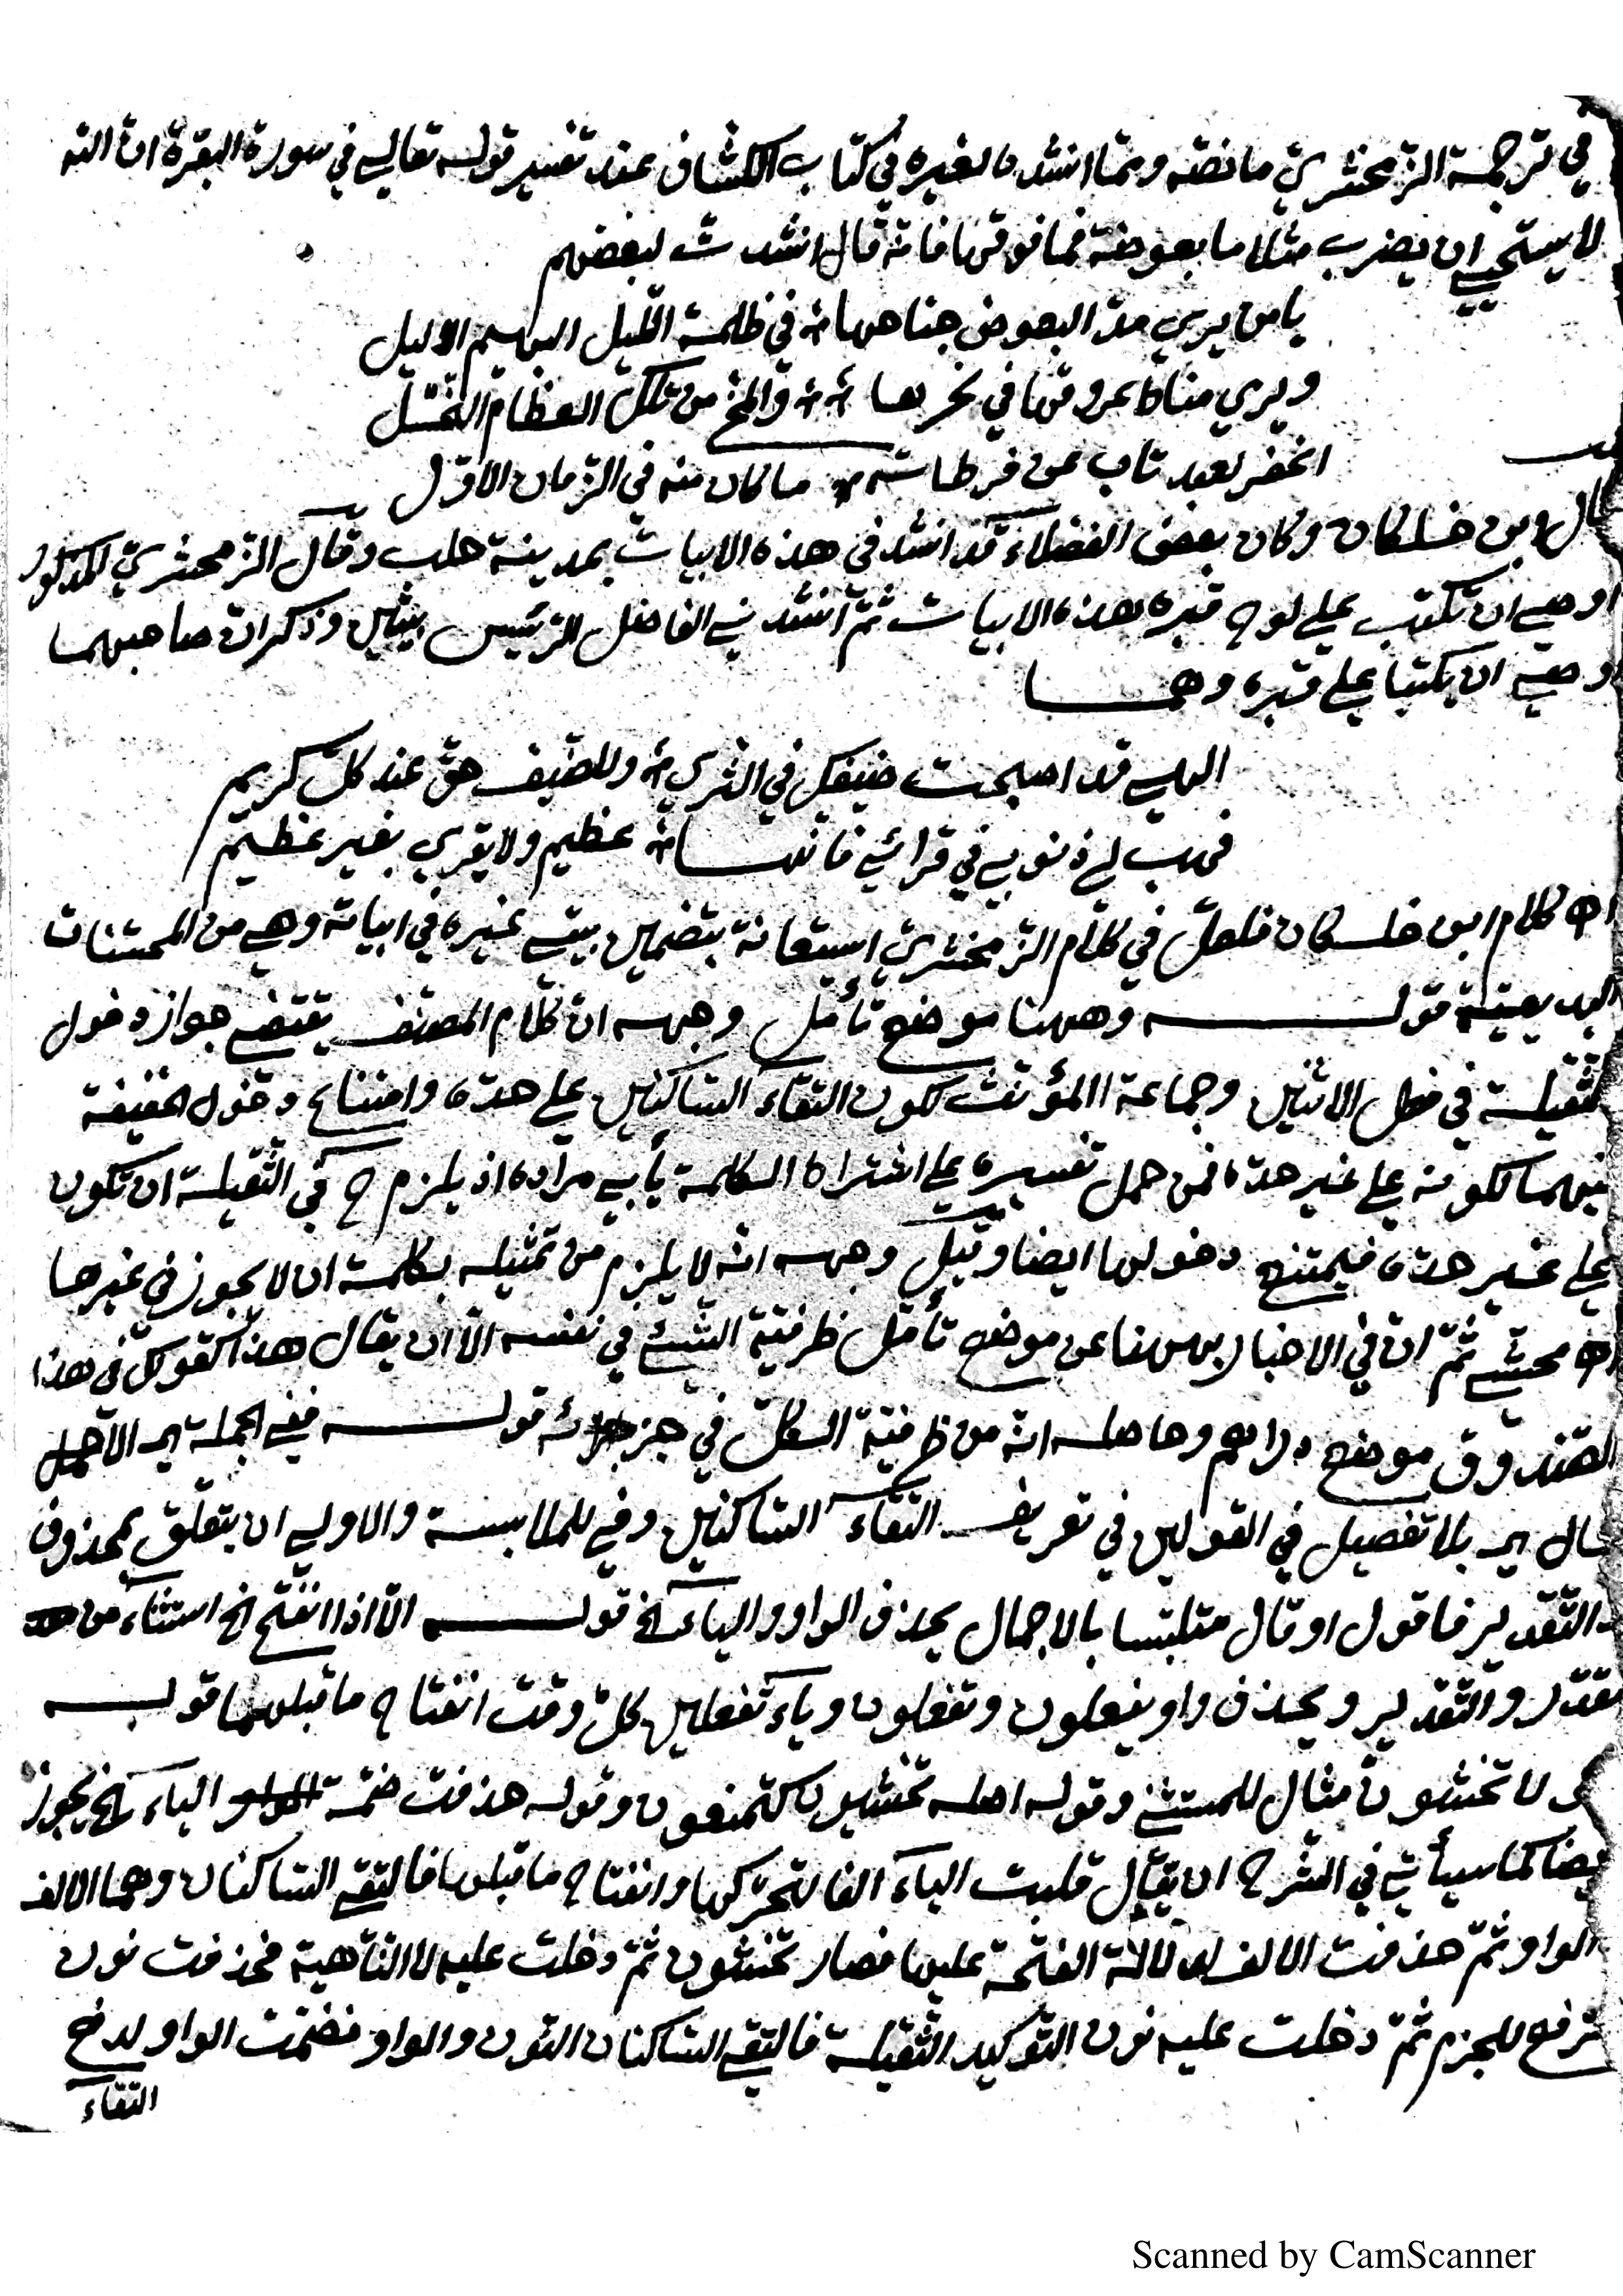 في ترجمة الزمخشري ما نصّه وممّا انشده لغيره في كتاب الكشاف عند تفسير قوله تعالي في سورة البقرة انّ الله
لا يستحيي ان يضرب مثلا ما بعوضة فما فوقها فانّه قال انشدت لبعضهم
يا من يري مدّ البعوض جناحها في ظلمة اللّيل البهيم الاليل
ويري مناط عروقها في نحرها والمخّ من تلك العظام النّحّل
اغفر لعبد تاب عن فرطاته ما كان منه في الزّمان الاوّل
قال ابن خلكان وكان بعض الفضلاء قد انشدني هذه الابيات بمدينة حلب وقال الزّمخشريّ المذكور
اوصي ان تكتب علي لوح قبره هذه الابيات ثمّ انشدني الفاضل الرّئيس بيتين وذكر انّ صاحبهما
اوصي ان يكتبا علي قبره وهما
الهي قد اصبحت ضيفك في الثّري وللضّيف حقّ عند كلّ كريم
فهب لي ذنوبي في قرائي فانّها عظيم ولا يقري بغير عظيم
اه كلام ابن خلكان فلعلّ في كلام الزّمخشريّ استعانة بتضمين بيتي غيره في ابياته وهي من المحسّنات
البديعيّة قوله وههنا موضع تأمّل وجهه انّ كلام المصنّف يقتضي جواز دخول
الثّقيلة في فعل الاثنين وجماعة المؤنّث لكون التقاء السّاكنين علي حدّه وامتناع دخول الخفيفة
فيهما لكونه علي غير حدّه فمن حمل تفسيره علي اشتراط الكلمة يأبي مراده اذ يلزم ح في الثّقيلة ان تكون
علي غير حدّه فيمتنع دخولها ايضا وقيل وجهه انّه لا يلزم من تمثيله بكلمة ان لا يجوز في غيرها
اه محشّي ثمّ انّ في الاخبار بههنا عن موضع تأمّل ظرفيّة الشّيء في نفسه الّا ان يقال هذا كقولك في هذا
الصّندوق موضع دراهم وحاصله انّه من ظرفيّة الكلّ في جزئه قوله ففي الجملة اي الاجمال
قال اي بلا تفصيل في القولين في تعريف التقاء السّاكنين وفي للملابسة والاولي ان يتعلّق بمحذوف
والتّقدير فاقول او قال متلبّسا بالاجمال يحذف الواو والياء الخ قوله الّا اذا انفتح الخ استثناء من
مقدّر والتّقدير ويحذف واو يفعلون وتفعلون وياء تفعلين كلّ وقت انفتاح ما قبلهما قوله
لا تخشونّ مثال للمستثني وقوله اصله تخشيون كتمنعون وقوله حذفت ضمّة الياء الخ يجوز
ايضا كما سيأتي في الشّرح ان يقال قلبت الياء الفا لتحرّكها وانفتاح ما قبلها فالتقي السّاكنان وهما الالف
والواو ثمّ حذفت الالف لدلالة الفتحة عليها فصار تخشون ثمّ دخلت عليه لا النّاهية فحذفت نون
الرّفع للجزم ثمّ دخلت عليه نون التّوكيد الثّقيلة فالتقي السّاكنان النّون والواو فضمّت الواو لدفع
التقاء
Scanned by CamScanner